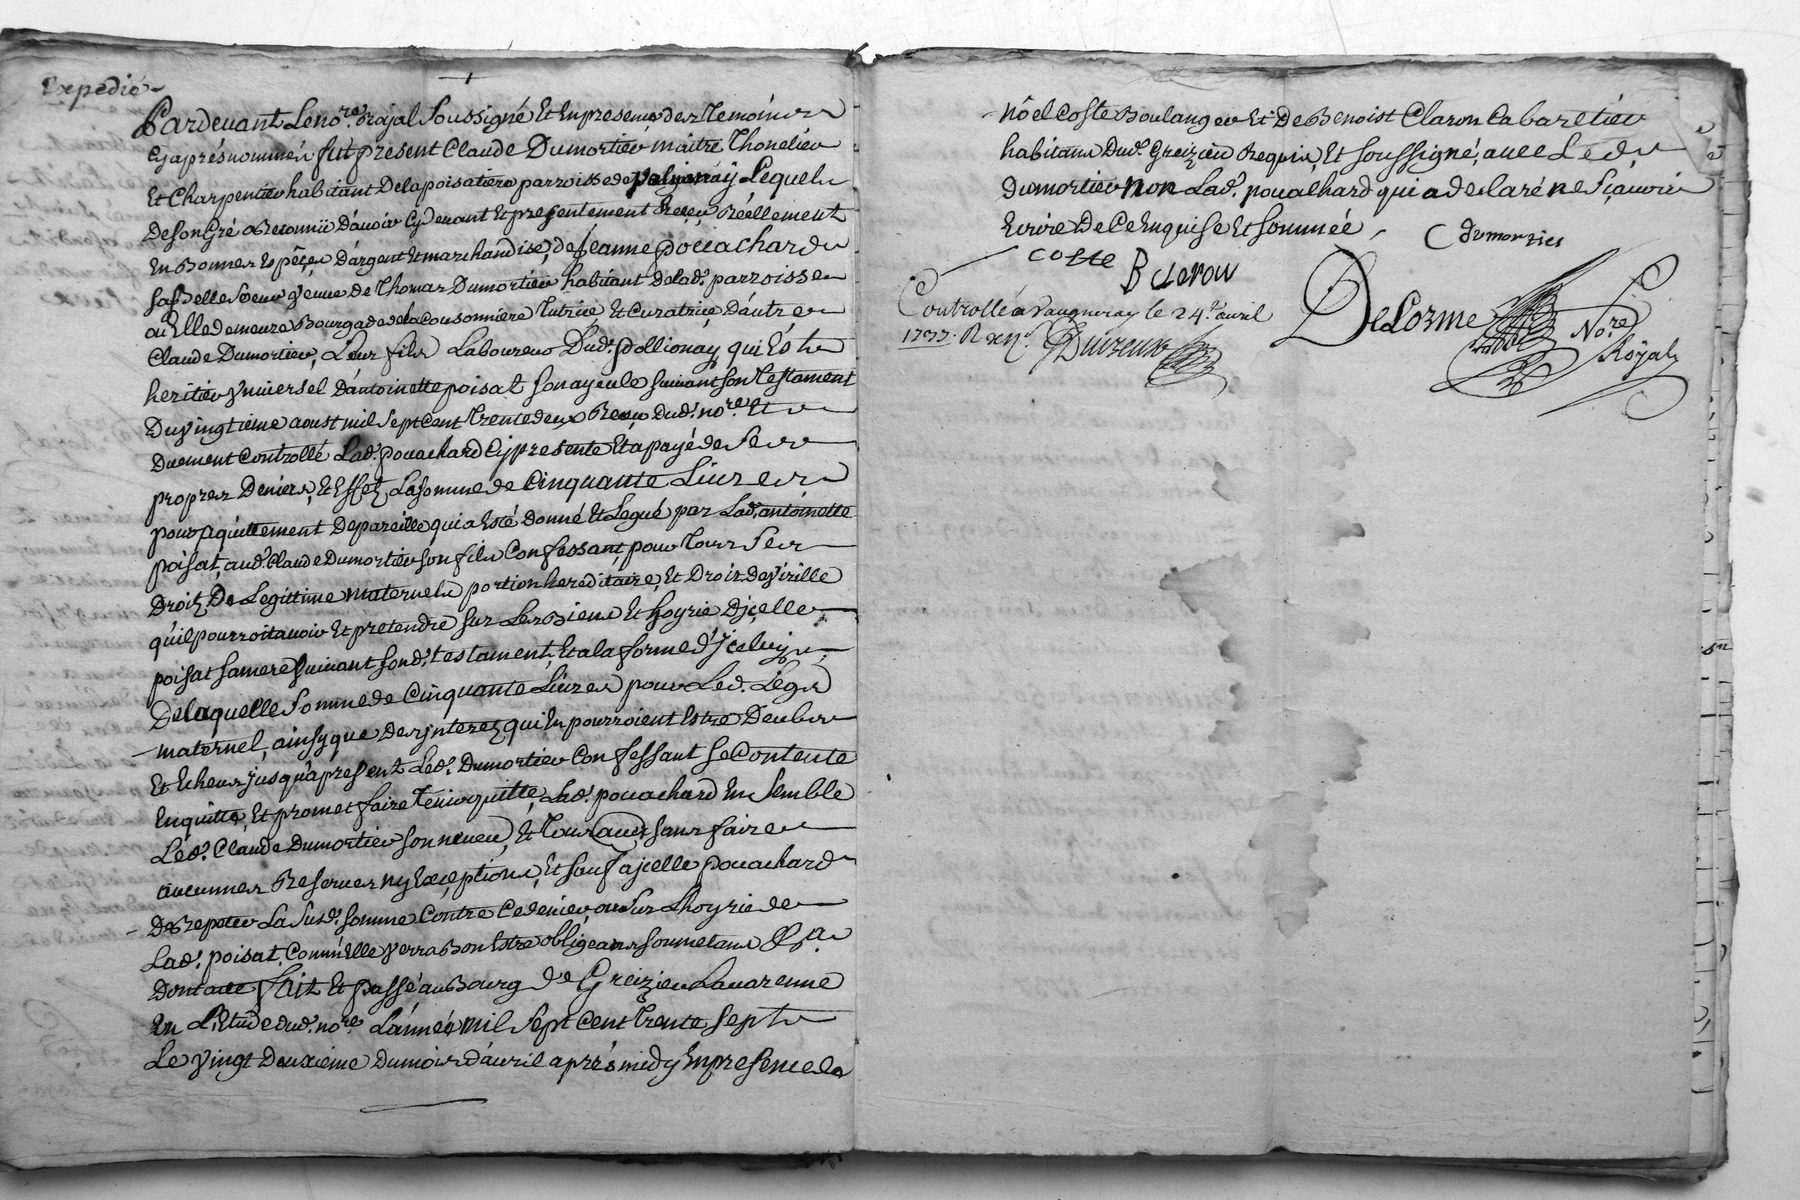 Expedié
Pardevant Le no.re Royal Soussigné Et En presence des Temoins
Cy aprés nommés fut present Claude Dumortier maitre Thonelier
Et Charpentier habitant De la poisatiere parroisse de pollionay Lequel
De son gré a Reconnü D'avoir Cy devant Et presentement Receu Réellement
En Bonnes Espêces D'argent Et marchandise, de Jeanne pouachard
sa Belle Soeur veuve de Thomas Dumortier habitant de lad. parroisse
ou Elle demeure Bourgade de la Cousonniere Tutrice Et Curatrice D'autre
Claude Dumortier, Leur fils Laboureur Dud. pollionay qui Est
heritier Universel D'antoinette poisat son ayeule suivant son Testament
Du vingtieme aoust mil sept cent Trente deux Receu Dud. no.re Et
Duement Controllé Lad. pouachard Cy presente Et a payé de Ses
propres Deniers, Et Effetz La somme de Cinquante Livres
pour aquittement De pareille qui a Esté donné Et Legué par Lad. antoinette
poisat, aud. Claude Dumortier son fils Confessant, pour Tous Ses
Droitz De Legittime maternels portion hereditaire, Et Droit de Virille
qu'il pourroit avoir Et pretendre sur Les Biens Et hoyrie D'jcelle
poisat sa mere Suivant son d. testament, Et a la forme d'Jceluy
De laquelle Somme de Cinquante Livres pour Led. Légs
maternel, ainsy que des jnteretz qui En pourroient Estre Deubs
Et Echeus jusqu'a present Led. Dumortier Confessant se Contente
En quitte, Et promet faire Tenir quitte, Lad. pouachard Ensemble
Led. Claude Dumortier son neveu, Et Tous autres sans faire
aucunnes Reserves ny Exceptions, Et sauf a jcelle pouachard
De Repeter La Susd. somme Contre Ce denier ou Sur L'hoyrie de
Lad. poisat, Comm'Elle verra Bon Estre obligeans soumetans &a
Dont acte fait Et passé au Bourg de Greizieu Lavarenne
En L'Etude dud. no.re L'année mil sept Cent Trente sept
Le vingt Deuxieme Du mois d'avril aprés midy En presence de
nöel Coste Boulanger Et De Benoist Claron Cabaretier
habitans Dud. Greizieu Requis, Et soussigné, avec Led.
Dumortier non Lad. pouachard qui a declaré ne sçavoir
Ecrire De Ce Enquise Et sommée
C dumortier
Coste
B Claron
Controllé a Vaugneray le 24.e avril
1737.
DeLorme
No.re
Royal